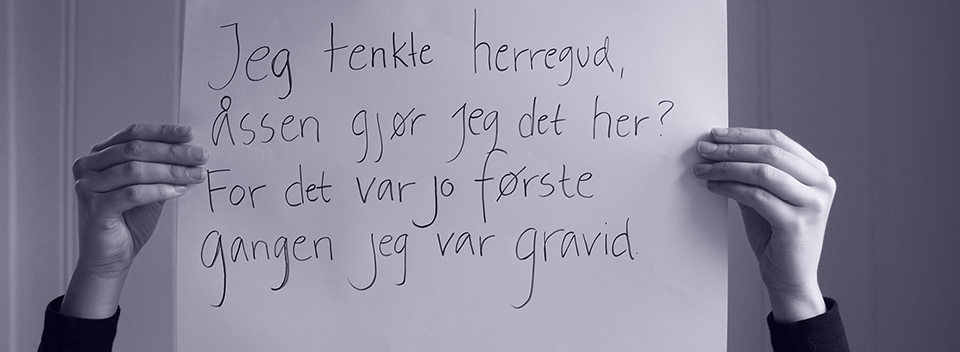 Jeg tenkte herregud,
åssen gjør jeg det her?
For det var jo første
gangen jeg var gravid.